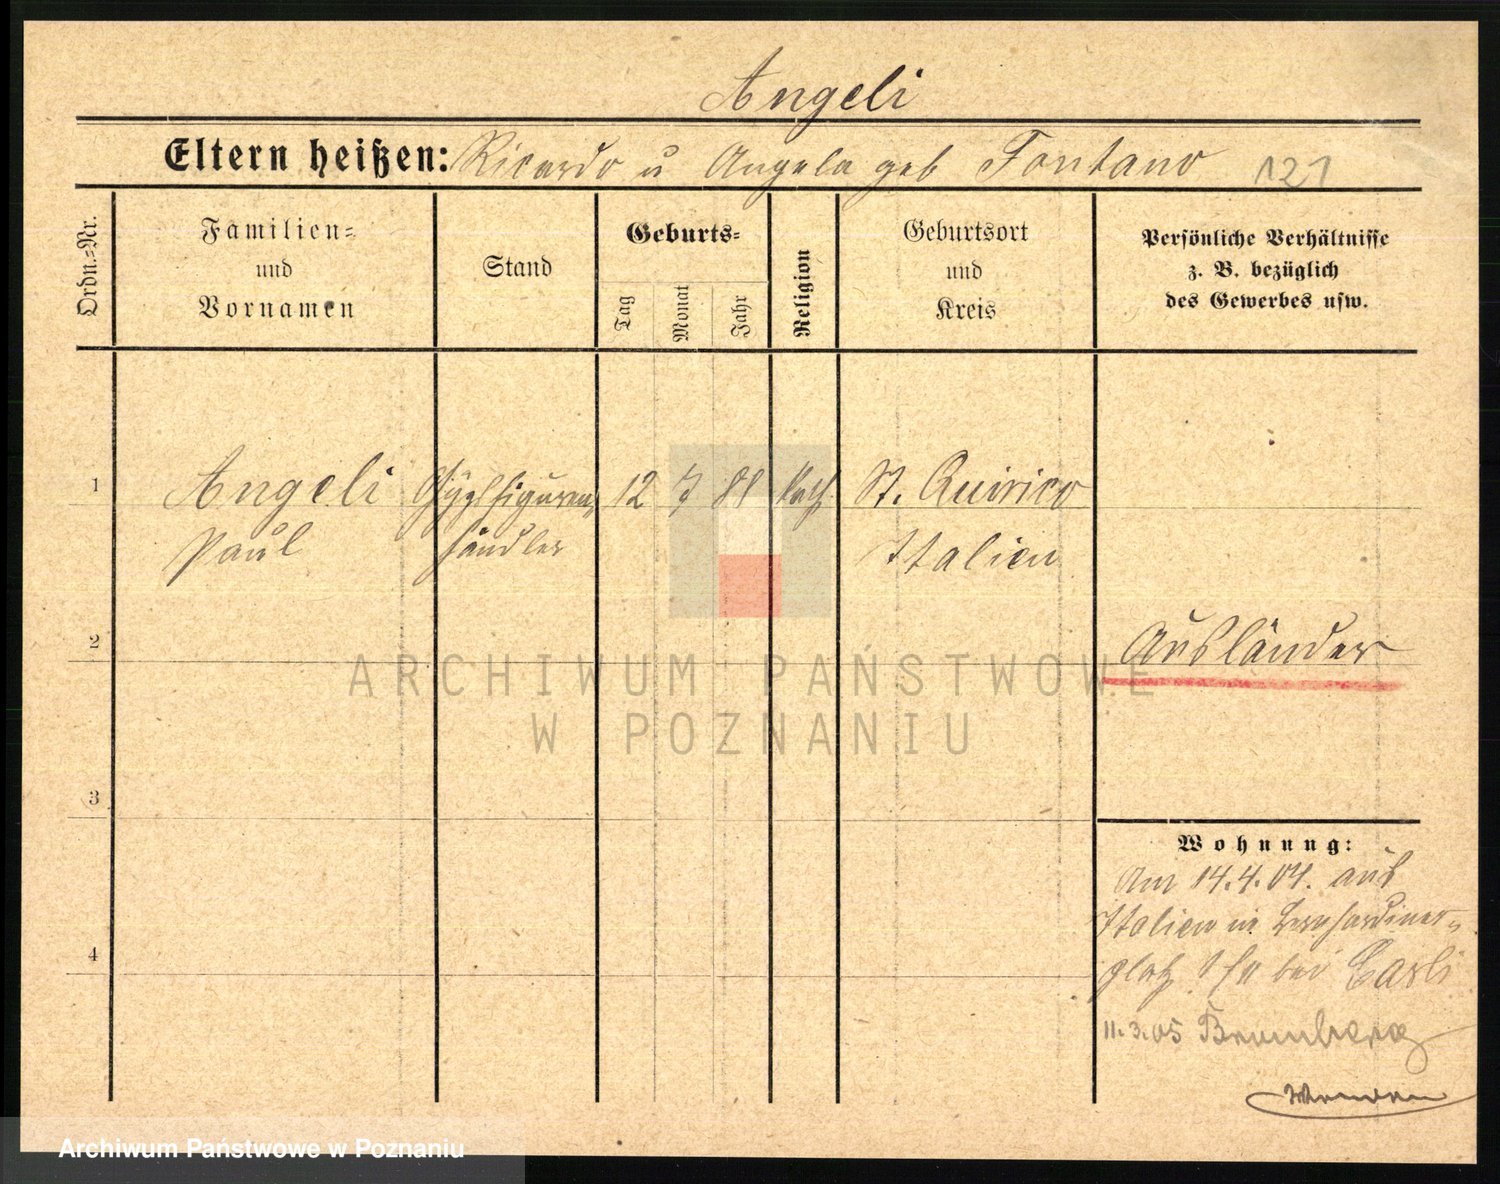 Angeli
Eltern heißen: Ricardo u Angela geb Fontano 121
Ordn.-Nr.
Familien-
und
Vornamen
Stand
Geburts-
Tag
Monat
Jahr
Religion
Geburtsort
und
Kreis
Persönliche Verhältnisse
z. B. bezüglich
des Gewerbes usw.
1 Angeli Gypsfiguren 12 7 88 kath St. Quirico
Paul händler Italien
2 Ausländer
ARCHIWUM PAŃSTWOWE
W POZNANIU
3
Wohnung:
Am 14.4.04. aus
Italien in Bernhardiner-
4
platz bei Carli
11.3.05 Bromberg
Archiwum Państwowe w Poznaniu